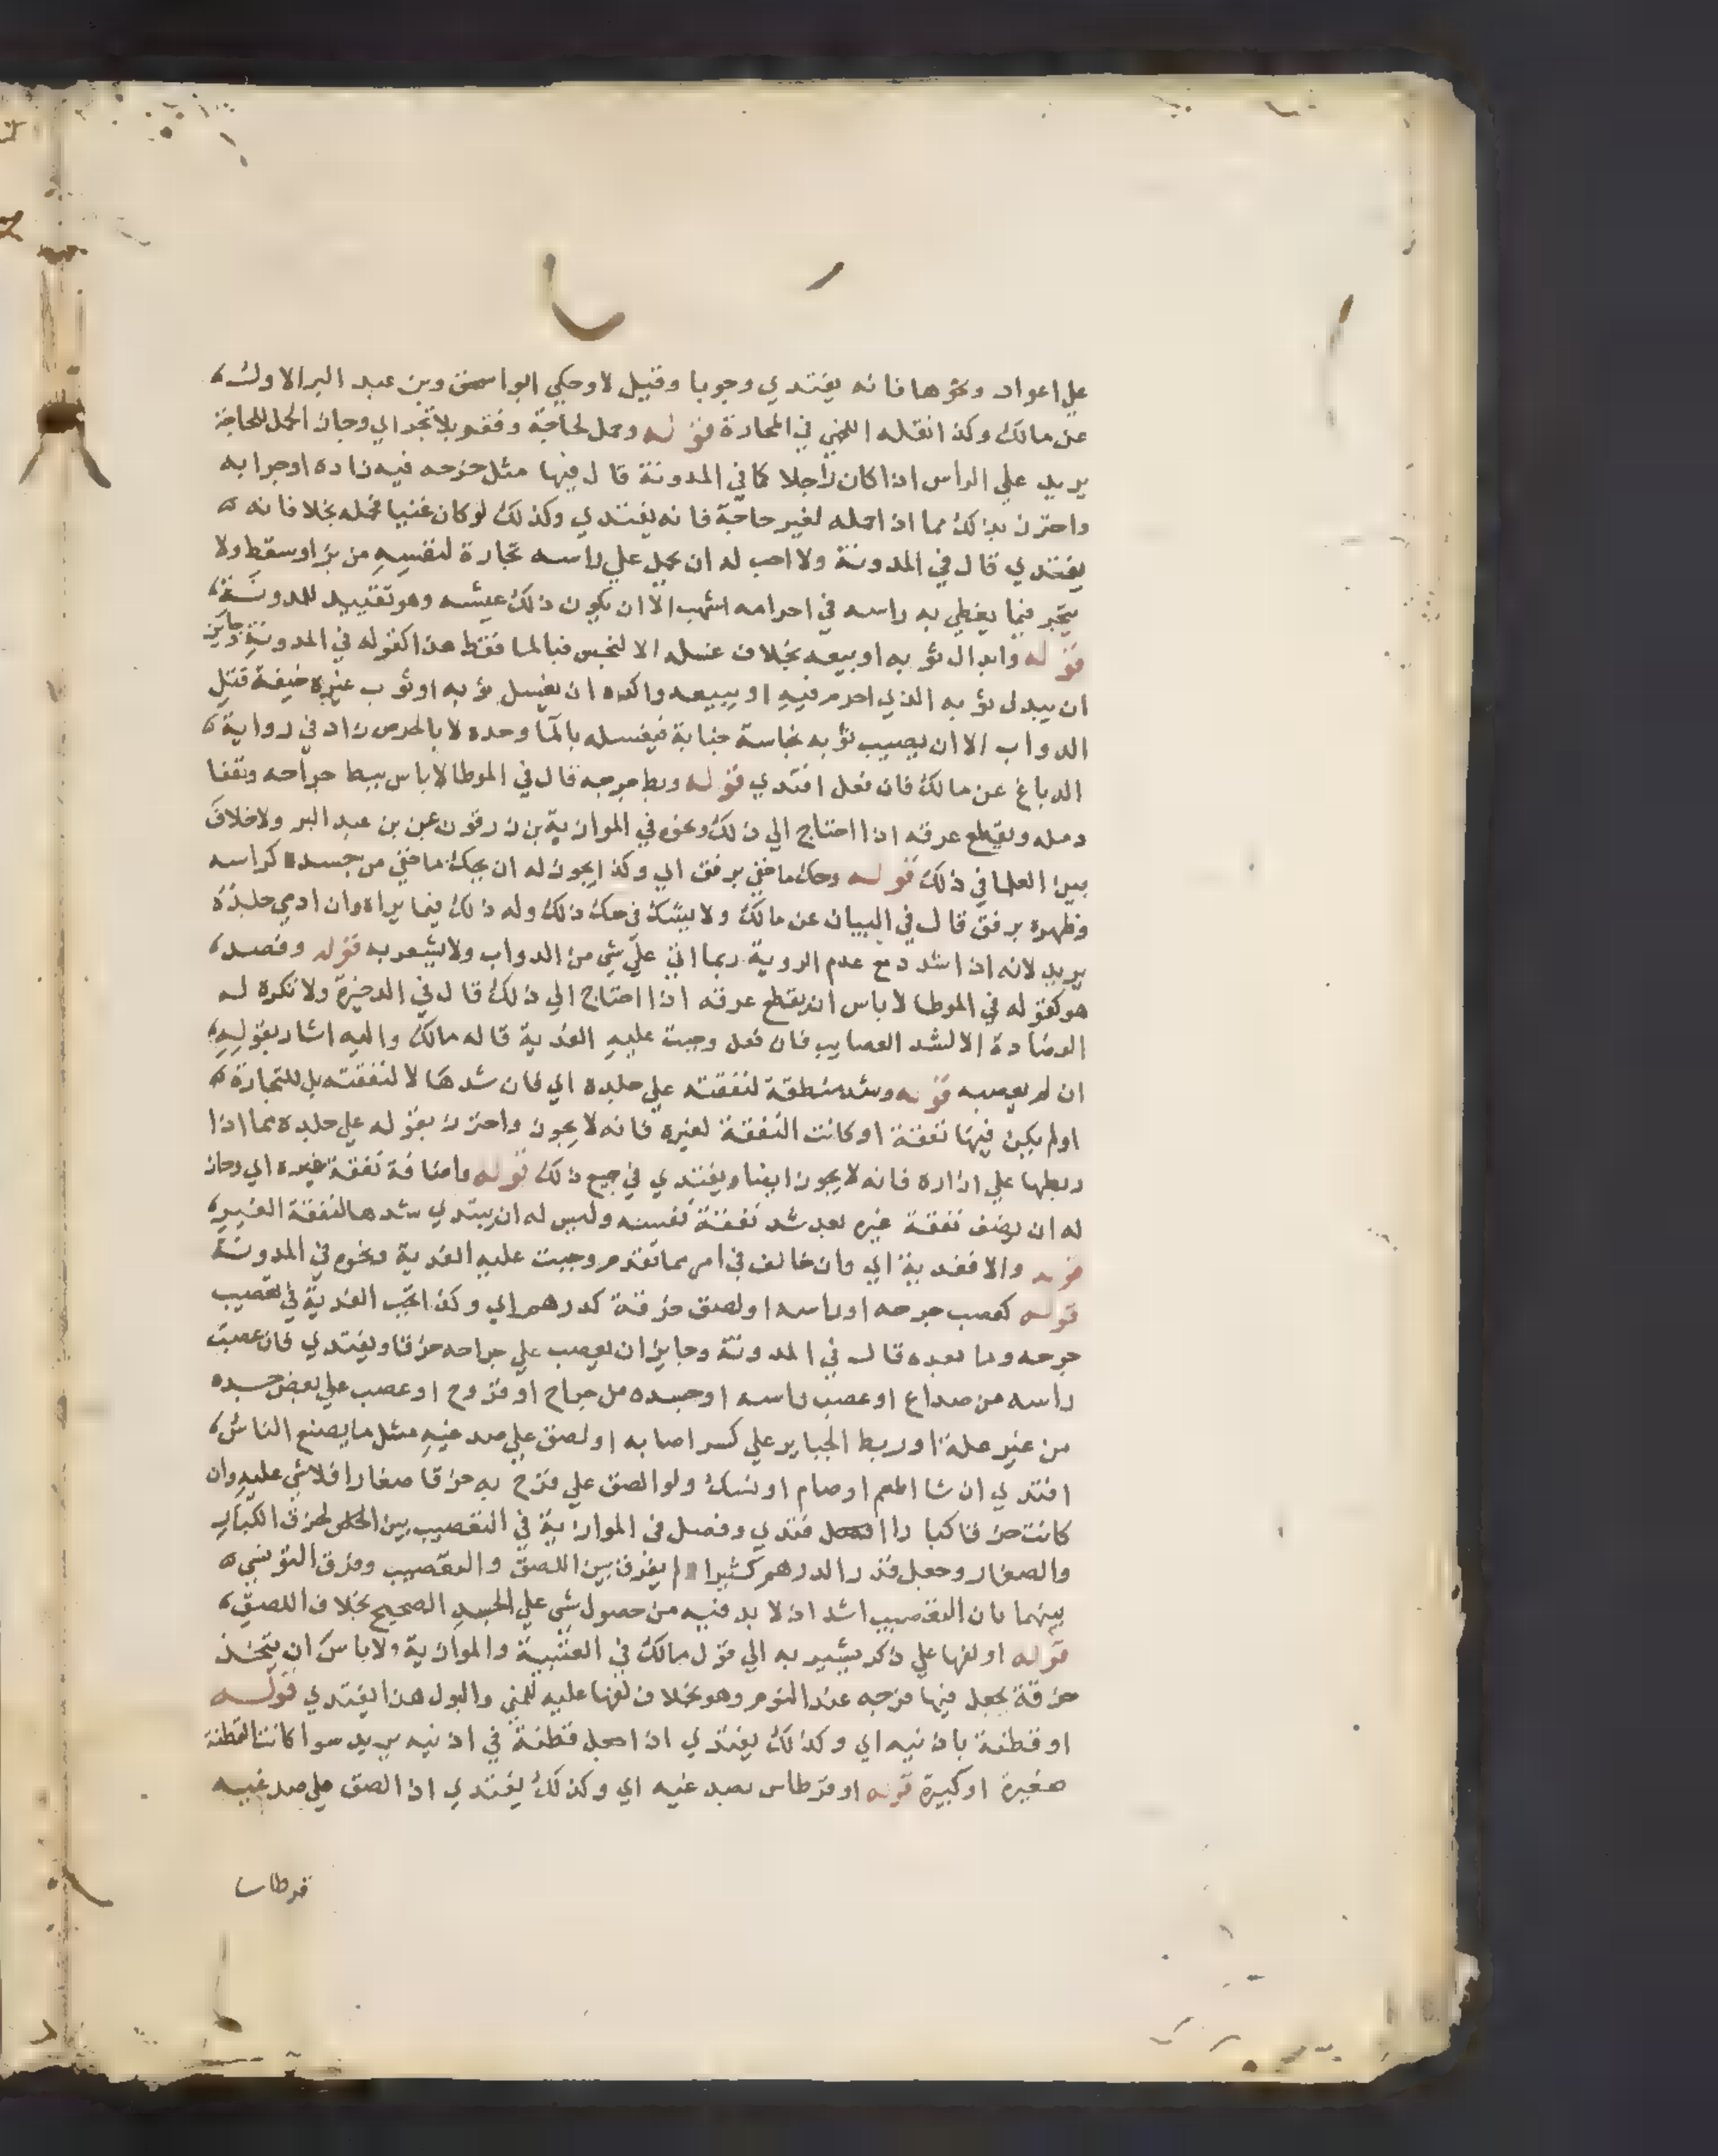 علي اعواد ونحوها فانه يفتدي وجوبا وقيل لا وحكي ابواسحق وبن عبد البر الاول
عن مالك وكذا نقله اللخمي في المحارة قوله وحمل لحاجة وفقر بلا تجر اي وجاز الحمل للحاجة
يريد علي الراس اذا كان راجلا كما في المدونة قال فيها مثل خرجه فيه زاده او جرابه
واحترز بذلك مما اذا حمله لغير حاجة فانه يفتدي وكذلك لو كان غنيا فحمله بخلا فانه
يفتدي قال في المدونة ولا احب له ان يحمل علي راسه تجارة لنفسه من بز او سقط ولا
يتجر فيما يغطي به راسه في احرامه اشهب الا ان يكون ذلك عيشه وهو تقييد للمدونة
قوله وابدال ثوبه او بيعه بخلاف غسله الا لنجس فبالما فقط هذا كقوله في المدونة وجايز
ان يبدل ثوبه الذي احرم فيه او يبيعه واكره ان يغسل ثوبه او ثوب غيره خيفة قتل
الدواب الا ان يصيب ثوبه نجاسة جنابة فيغسله بالما وحده لا بالحرض زاد في رواية
الدباغ عن مالك فان فعل افتدي قوله وبط جرحه قال في الموطا لا باس ببط جراحه وتفقا
دمله ويقطع عرقه اذا احتاج الي ذلك ونحوه في الموازية بن زرقون عن بن عبد البر ولا خلاف
بين العلما في ذلك قوله وحك ما خفي برفق اي وكذا يجوز له ان يحك ما خفي من جسده كراسه
وظهره برفق قال في البيان عن مالك ولا يشك في حك ذلك وله ذلك فيما يراه وان ادمي جلده
يريد لانه اذا شدد مع عدم الروية ربما اتي علي شي من الدواب ولا يشعر به قوله وفصد
هو كقوله في الموطا لا باس ان يقطع عرقه اذا احتاج الي ذلك قال في الدخيرة ولا تكره له
الفصادة الا لشد العصايب فان فعل وجبت عليه الفدية قاله مالك واليه اشار بقوله
ان لم يعصبه قوله وشد منطقة لنفقته علي جلده اي فان شدها لا لنفقته بل للتجارة
اولم يكن فيها نفقة او كانت النفقة لغيره فانه لا يجوز واحترز بقوله علي جلده مما اذا
ربطها علي ازاره فانه لا يجوز ايضا ويفتدي في جميع ذلك قوله واضافة نفقة غيره اي وجاز
له ان يضف نفقة غيره بعد شد نفقة نفسه وليس له ان يبتدي شدها لنفقة الغير
قوله والا ففدية اي وان خالف في امر مما تقدم وجبت عليه الفدية ونحوه في المدونة
قوله كعصب جرحه او راسه او لصق خرقة كدرهم اي وكذا تجب الفدية في تعصيب
جرحه وما بعده قال في المدونة وجايز ان يعصب علي جراحه خرقا ويفتدي فان عصب
راسه من صداع او عصب راسه او جسده من جراح او قروح او عصب علي بعض جسده
من غير علة او ربط الجباير علي كسر اصابه او لصق علي صدغيه مثل ما يصنع الناس
افتدي ان شا اطعم او صام او نسك ولو الصق علي قرح به خرقا صغارا فلا شي عليه وان
كانت خرقا كبا را افتدي وفصل في الموازية في التعصيب بين الخرق الكبار
والصغار وجعل قدر الدرهم كثيرا لم يفرق بين اللصق والتعصيب وفرق التونسي
بينهما بان التعصيب اشد اذ لا بد فيه من حصول شي علي الجسد الصحيح بخلاف اللصق
قوله او لفها علي ذكر يشير به الي قول مالك في العتبية والموازية ولا باس ان يتخذ
خرقة يجعل فيها فرجه عند النوم وهو بخلاف لفها عليه للمني والبول هذا يفتدي قوله
او قطنة باذنيه اي وكذلك يفتدي اذا جعل قطنة في اذنيه يريد سوا كانت القطنة
صغيرة او كبيرة قوله او قرطاس بصدغيه اي وكذلك يفتدي اذا الصق علي صدغيه
قرطاسا